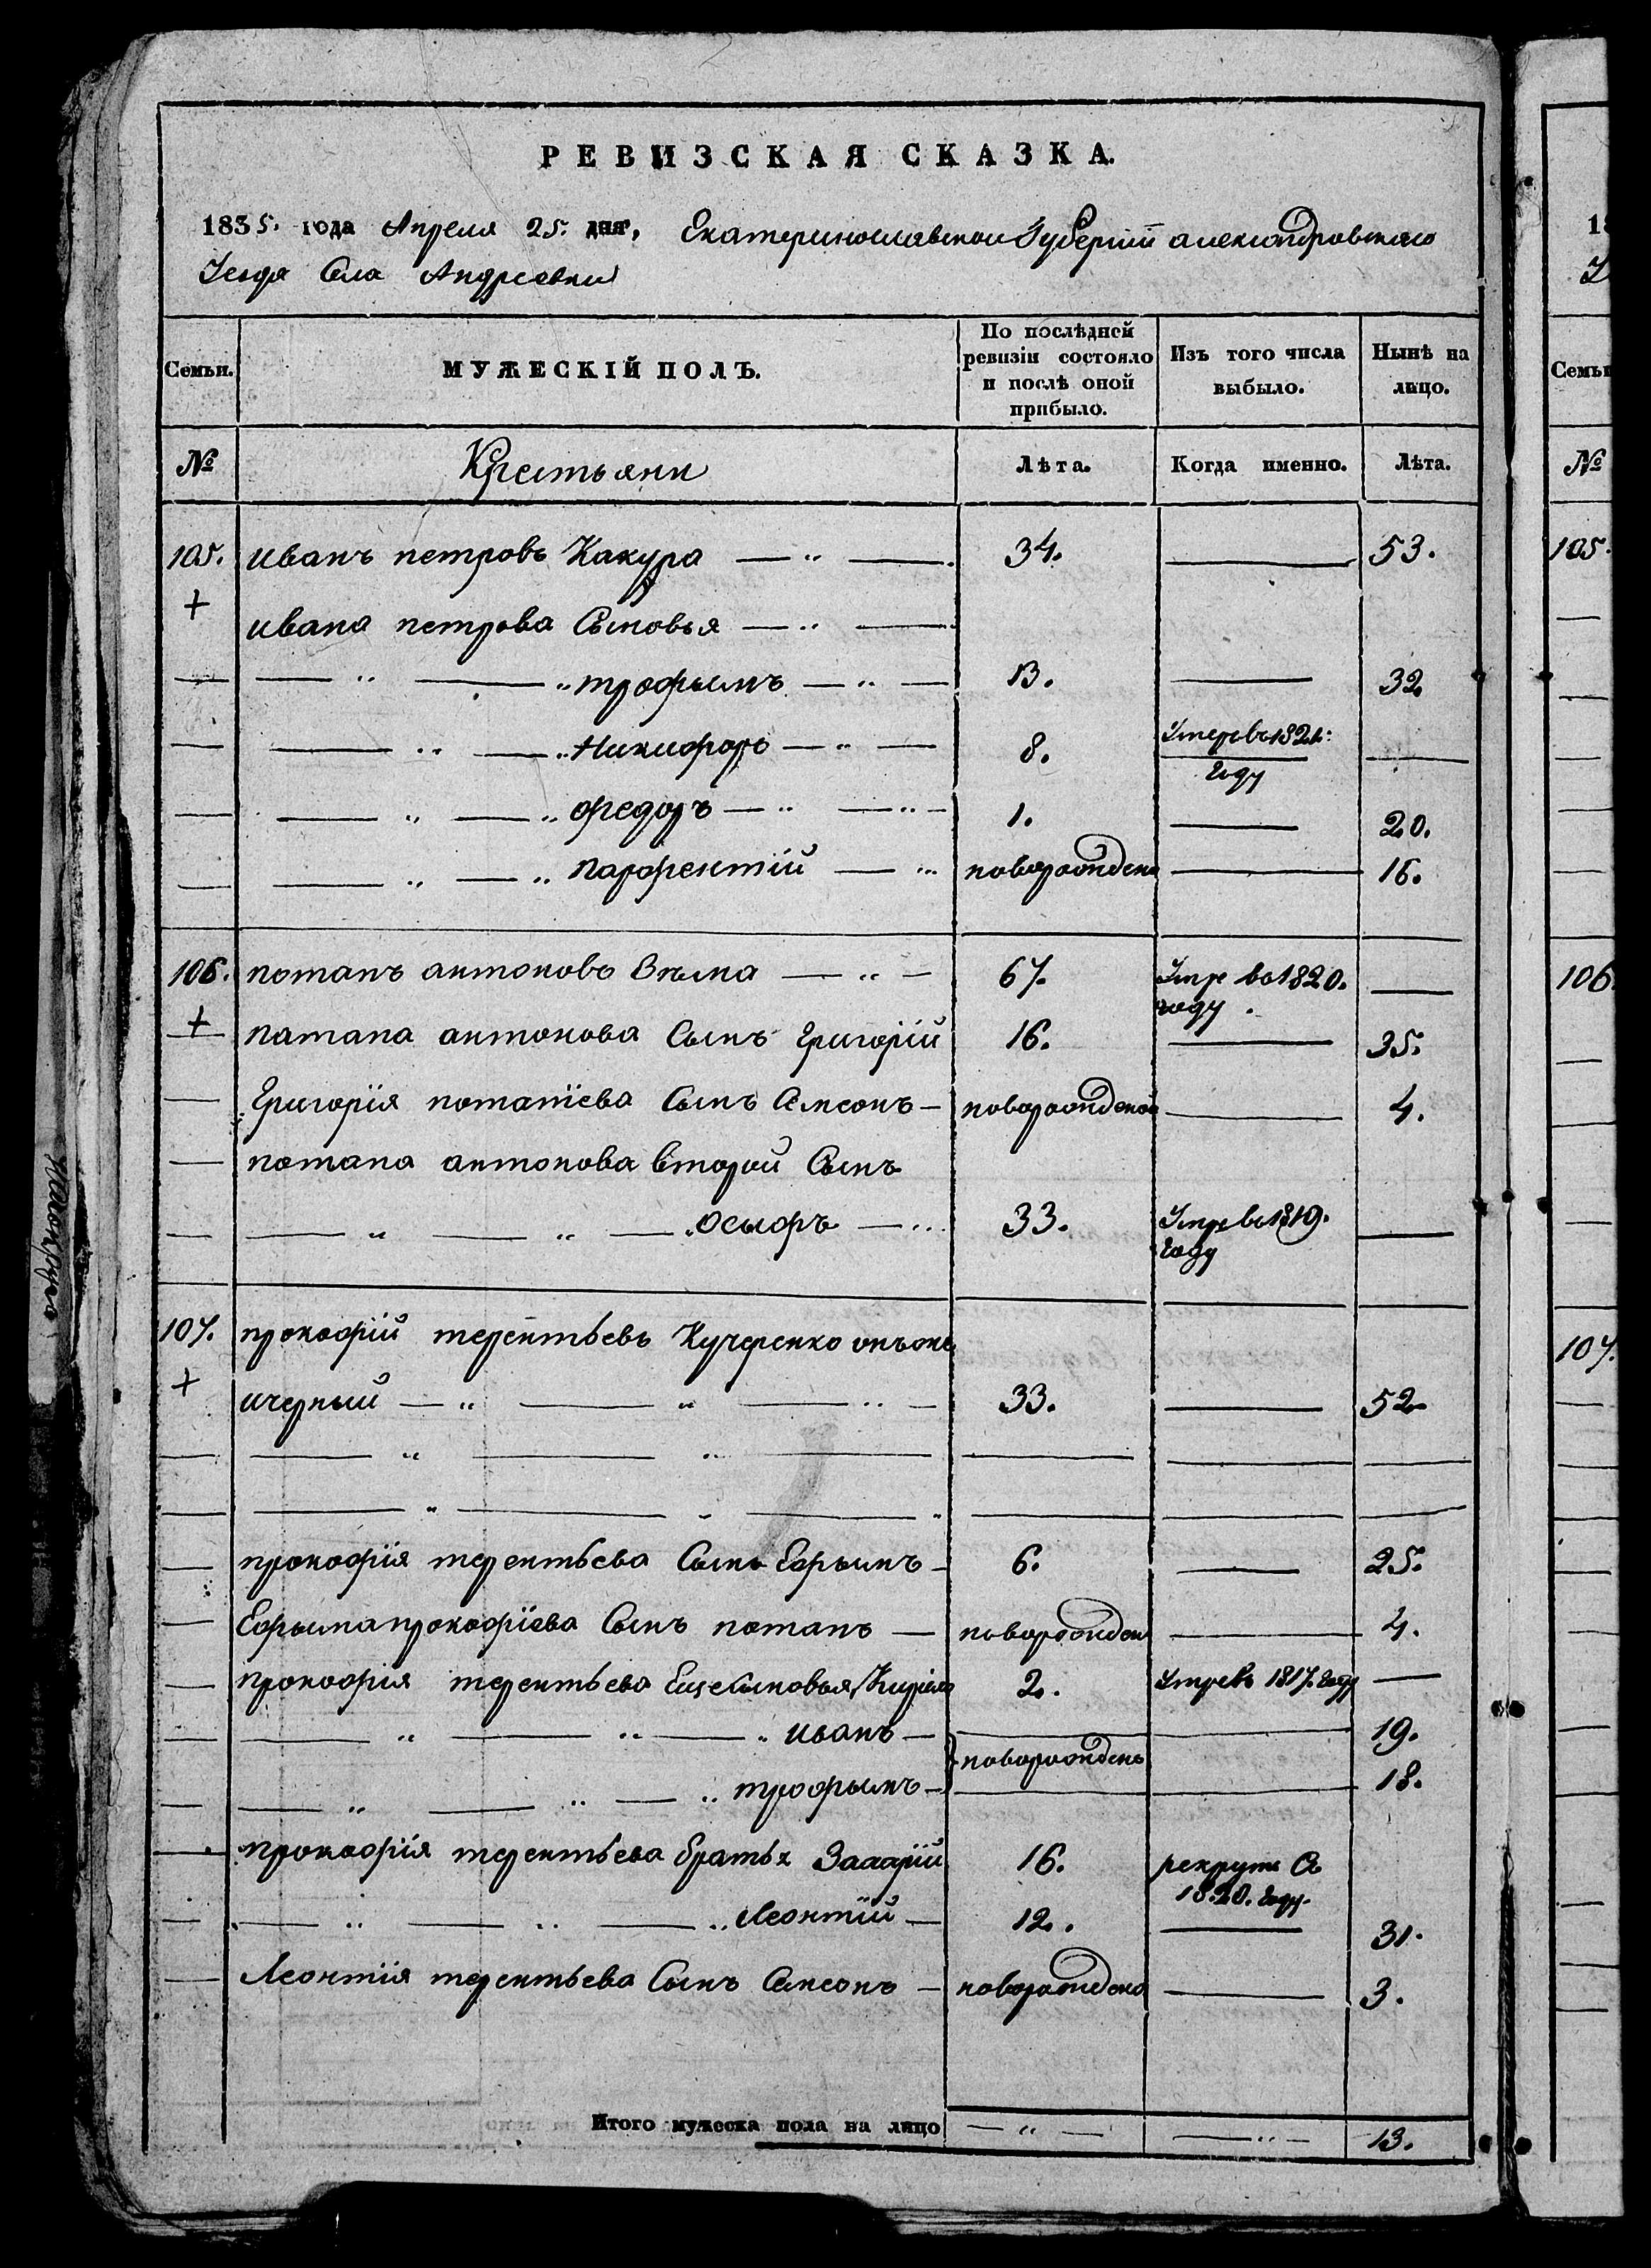 РЕВИЗСКАЯ СКАЗКА.
1835. года Апреля 25. дня, Екатеринославской Губернии александровского
Уезда Села Андреевки
Семьи. МУЖЕСКІЙ ПОЛЪ. По послѣдней ревизіи состояло и послѣ оной прибыло. Изъ того числа выбыло. Нынѣ на лицо.
№ Крестьяни Лѣта. Когда именно. Лѣта.
105. иванъ петровъ Какура 34. 53.
ивана петрова Сыновья
трофымъ 13. 32
Никифоръ 8. Умеръ в 1821: году
федоръ 1. 20.
парфентій новорожденъ 16.
106. потапъ антоновъ 67. Умре во 1820. году
патапа антонова Сынъ григорій 16. 35.
григорія потапіева Сынъ Самсонъ новорожденой 4.
потапа антонова второй Сынъ
осыфъ 33. Умре во 1819. году
107. прокофій терентьевъ Кучеренко онъже
ичерный 33. 52
прокофія терентьева Сынъ Ефрымъ 6. 25.
Ефрыма прокофіева Сынъ потапъ новорожден 4.
прокофія терентьева Еще Сыновья Кирило 2. Умре въ 1817. году
иванъ 19.
новорождены
трофымъ 18.
прокофія терентьева братья Захарій 16. рекрутъ С 1820. году.
Леонтій 12. 31.
Леонтія терентьева Сынъ Самсонъ новорождено 3.
Итого мужеска пола на лицо 13.
18
У
Семьи
№
105.
106.
107.